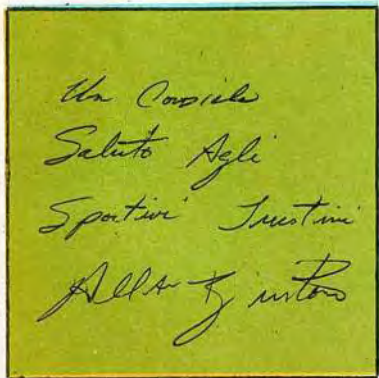 Un Cordiale
Saluto Agli
Sportivi Triestini